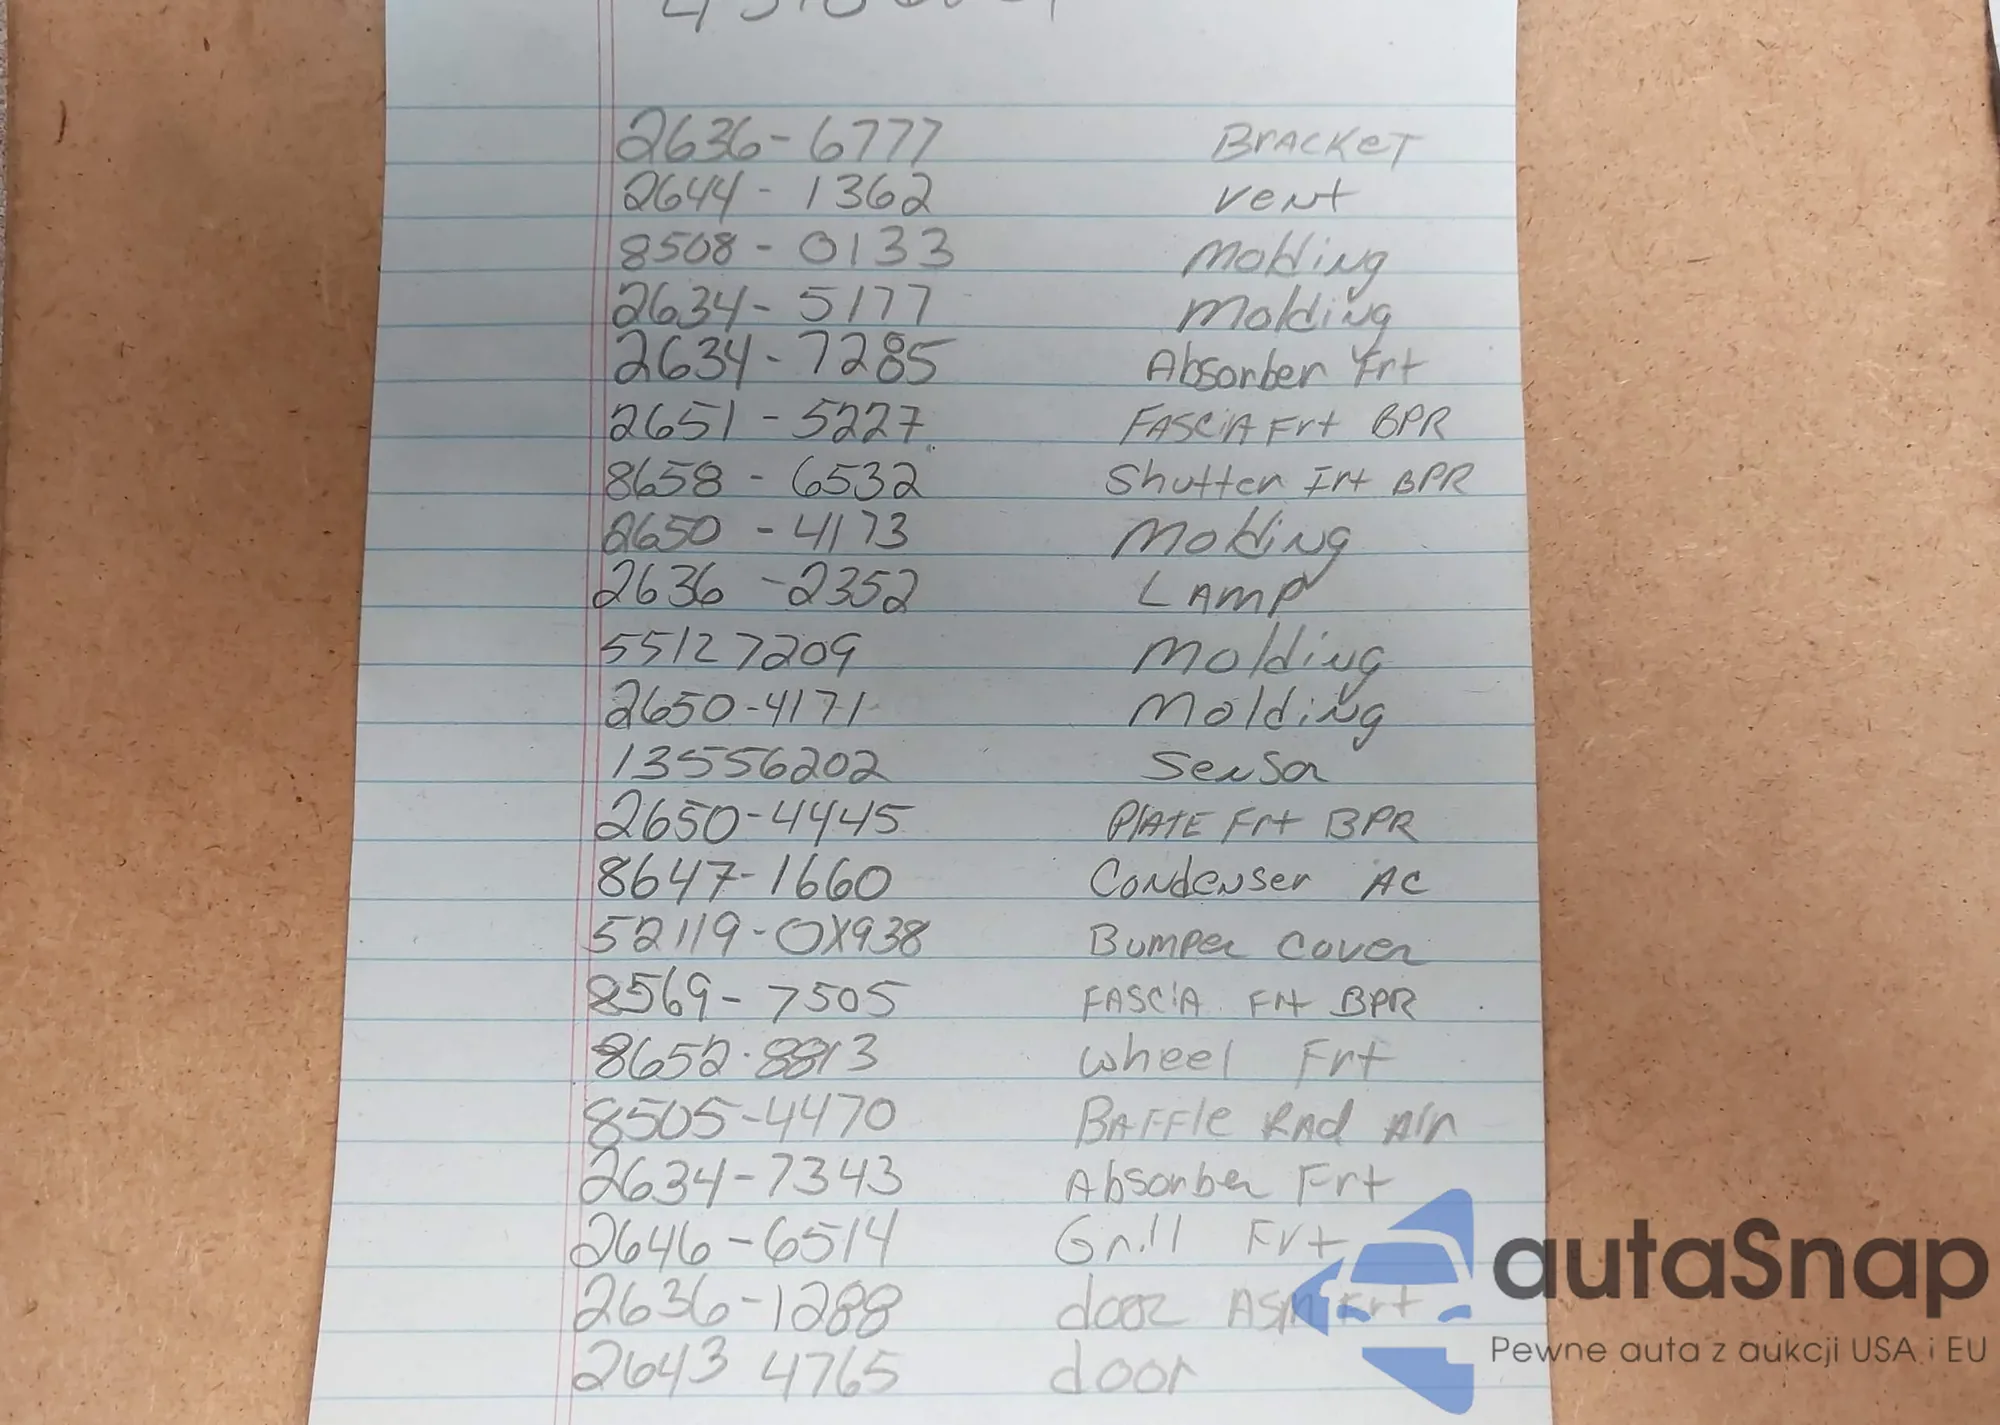 2636-6777 Bracket
2644-1362 vent
8508-0133 Molding
2634-5177 Molding
2634-7285 Absorber Frt
2651-5227 FASCIA Frt BPR
8658-6532 Shutter Frt BPR
2650-4173 Molding
2636-2352 LAMP
55127209 Molding
2650-4171 Molding
13556202 Sensor
2650-4445 PLATE Frt BPR
8647-1660 Condenser AC
52119-0X938 Bumper Cover
8569-7505 FASCIA Frt BPR
8652-8813 Wheel Frt
8505-4470 BAFFle RAd Air
2634-7343 Absorber Frt
2646-6514 Grill Frt
2636-1288 door ASM Frt
2643 4765 door
autaSnap
Pewne auta z aukcji USA i EU